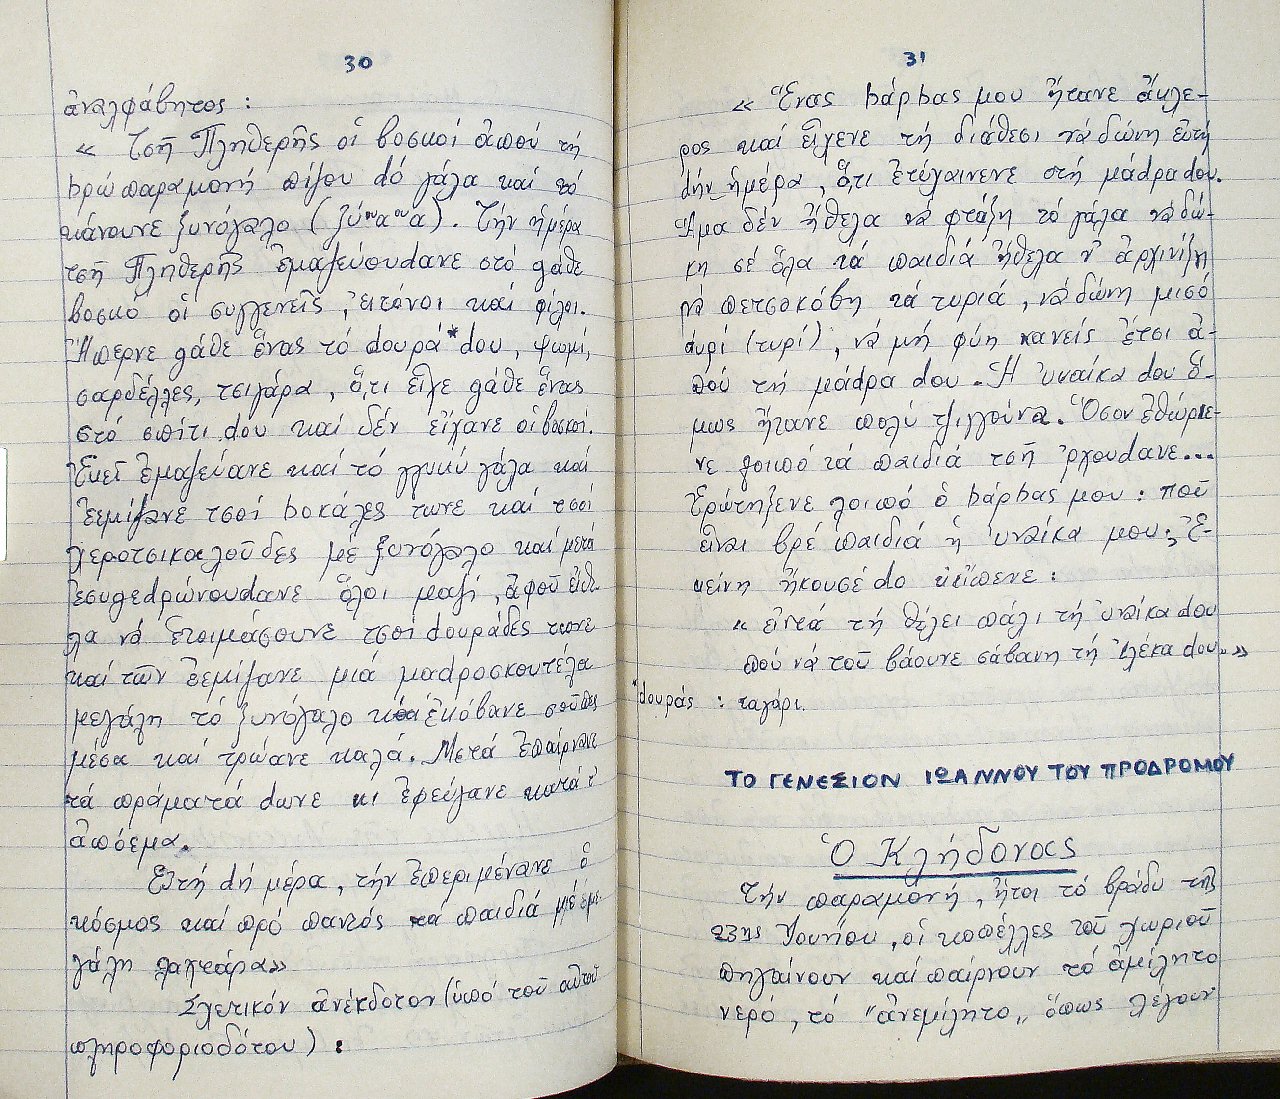 30
ἀναλφάβητος :
« Τσῆ Πληθερῆς οἱ βοσκοί ἀπού τή
bρώ παραμονή πίζου dό γάλα καί τό
κάνουνε ξυνόγαλο ( ). Τήν ἡμέρα
τσῆ Πληθερῆς ἐμαζεύουdανε στό κάθε
βοσκό οἱ συγγενεῖς, γειτόνοι καί φίλοι.
Ἤπερνε κάθε ἕνας τό dουρά* dου, ψωμί,
σαρδέλλες, τσιγάρα, ὅ,τι εἶχε κάθε ἕνας
στό σπίτι dου καί δέν εἴχανε οἱ βοσκοί.
Ἐκεῖ ἐμαζεύανε καί τό γλυκύ γάλα καί
ἐεμίζανε τσοί bοκάλες τωνε καί τσοί
χεροτσικαλοῦδες μέ ξυνόγαλο καί μετά
ἐσυκεdρώνουdανε ὅλοι μαζί, ἀφοῦ εἴθε-
λα νά ἑτοιμάσουνε τσοί dουράδες τωνε
καί τῶν ἐεμίζανε μιά μαdροσκουτέλα
μεγάλη τό ξυνόγαλο καί ἐκόβανε
μέσα καί τρώανε καλά. Μετά ἐπαίρνανε
τά πράματά dωνε κι ἐφεύγανε κατά τ'
ἀπόεμα.
Εὐτή dή μέρα, τήν ἐπεριμένανε ὁ
κόσμος καί πρό παντός τά παιδιά μέ με-
γάλη λαχτάρα»
Σχετικόν ἀνέκδοτον (ὑπό τοῦ αὐτοῦ
πληροφοριοδότου) :
31
« Ἕνας bάρbας μου ἤτανε ἄκλε-
ρος καί εἴχενε τή διάθεσι νά δώνη εὐτή
dήν ἡμέρα, ὅτι ἐτύχαινενε στή μάdρα dου.
Ἅμα δέν ἤθελα νά φτάξη τό γάλα νά δώ-
κη σέ ὅλα τά παιδιά ἤθελα ν' ἀρχινίξη
νά πετσοκόβη τά τυριά, νά δώνη μισό
dυρί (τυρί), νά μή φύη κανείς ἔτσι ἀ-
πού τή μάdρα dου. Ἡ 'υναίκα dου ὅ-
μως ἤτανε πολύ τσιγγούνα. Ὅσον ἐθώριε-
νε λοιπό τά παιδιά τσῆ 'ρχουdανε...
Ἐρώτηξενε λοιπό ὁ bάρbας μου : ποῦ
εἶναι βρέ παιδιά ἡ 'υναίκα μου; Ἐ-
κείνη ἤκουσέ dο κι εἴπενε :
« εἴντά τή θέλει πάλι τή 'υναίκα dου
πού νά τοῦ βάουνε σάβανη τή 'λέκα dου..»
*dουράς : ταγάρι.
ΤΟ ΓΕΝΕΣΙΟΝ ΙΩΑΝΝΟΥ ΤΟΥ ΠΡΟΔΡΟΜΟΥ
Ὁ Κλήδονας
Τήν παραμονή, ἤτοι τό βράδυ τῆς
23ης Ἰουνίου, οἱ κοπέλλες τοῦ χωριοῦ
πηγαίνουν καί παίρνουν τό ἀμίλητο
νερό, τό "ἀνεμίλητο„ ὅπως λέγουν